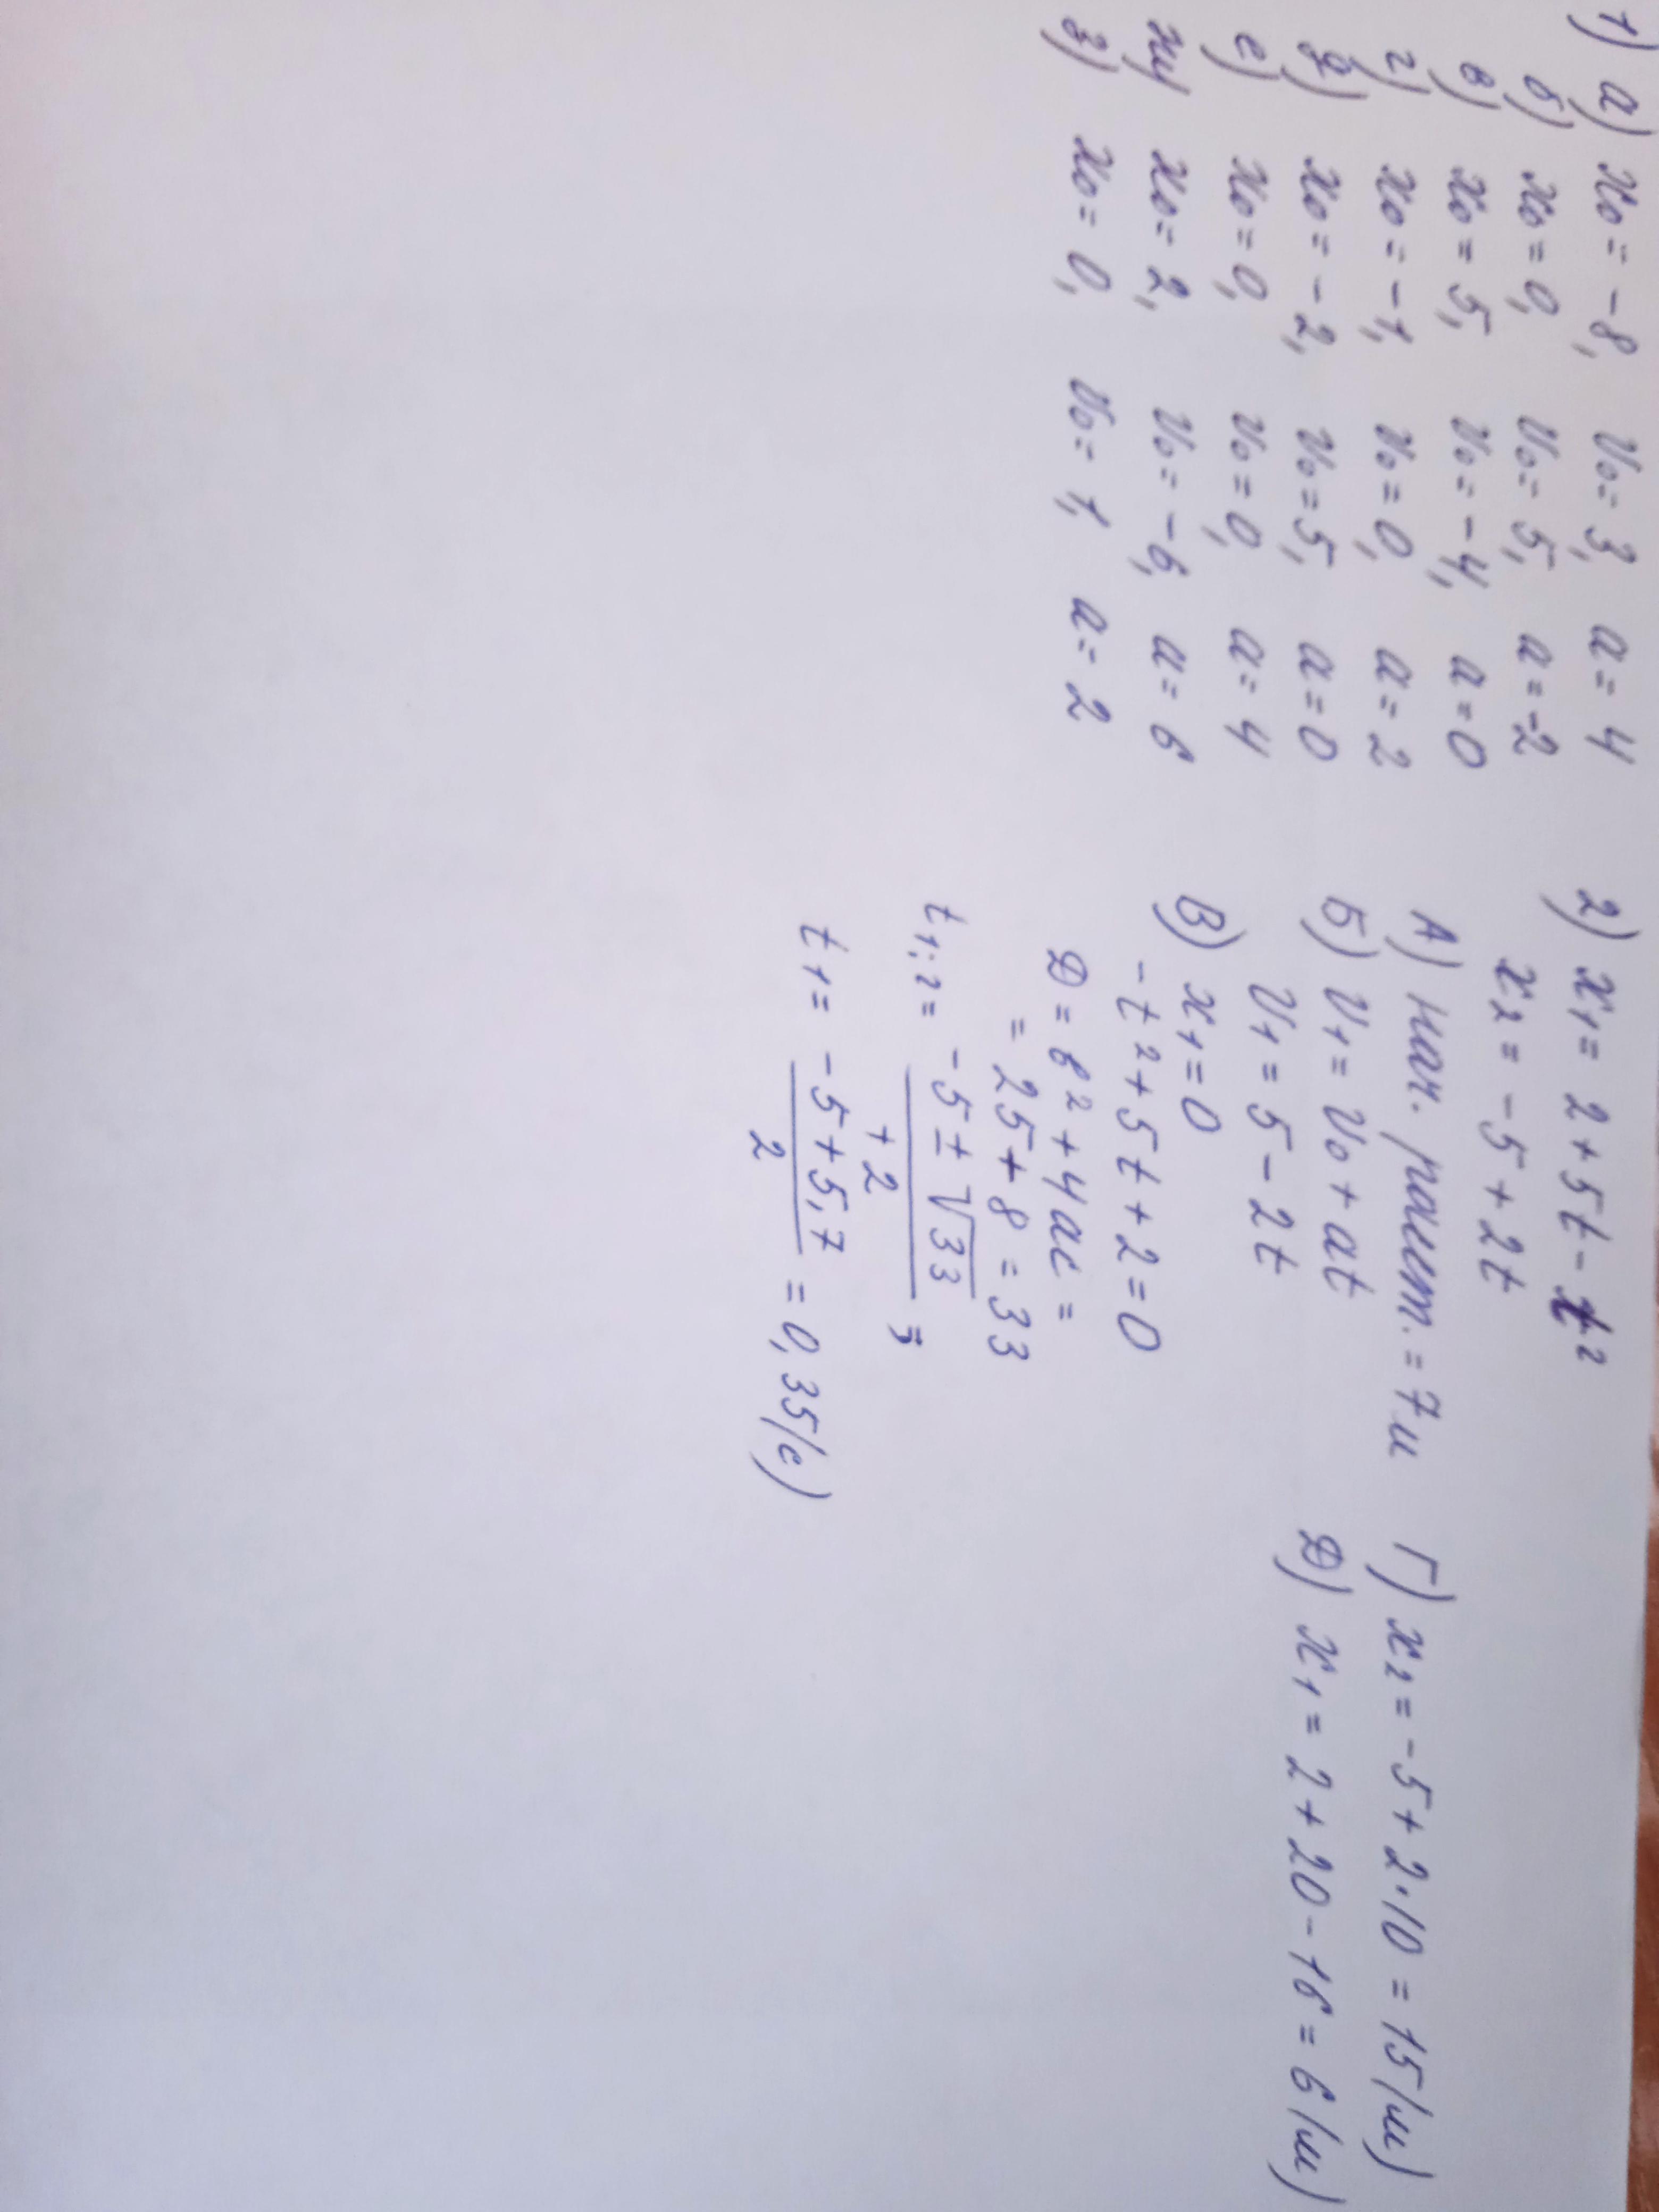 1) а) x₀ = -8, v₀ = 3, a = 4
б) x₀ = 0, v₀ = 5, a = -2
в) x₀ = 5, v₀ = -4, a = 0
г) x₀ = -1, v₀ = 0, a = 2
д) x₀ = -2, v₀ = 5, a = 0
е) x₀ = 0, v₀ = 0, a = 4
ж) x₀ = 2, v₀ = -6, a = 6
з) x₀ = 0, v₀ = 1, a = 2
2) x₁ = 2 + 5t - t²
x₂ = -5 + 2t
А) нач. раcст. = 7м
Б) v₁ = v₀ + at
v₁ = 5 - 2t
В) x₁ = 0
-t² + 5t + 2 = 0
Д = в² + 4ac =
= 25 + 8 = 33
t₁;₂ = (-5 ± √33) / +2 ;
t₁ = (-5 + 5,7) / 2 = 0,35 (с)
Г) x₂ = -5 + 2·10 = 15 (м)
Д) x₁ = 2 + 20 - 16 = 6 (м)